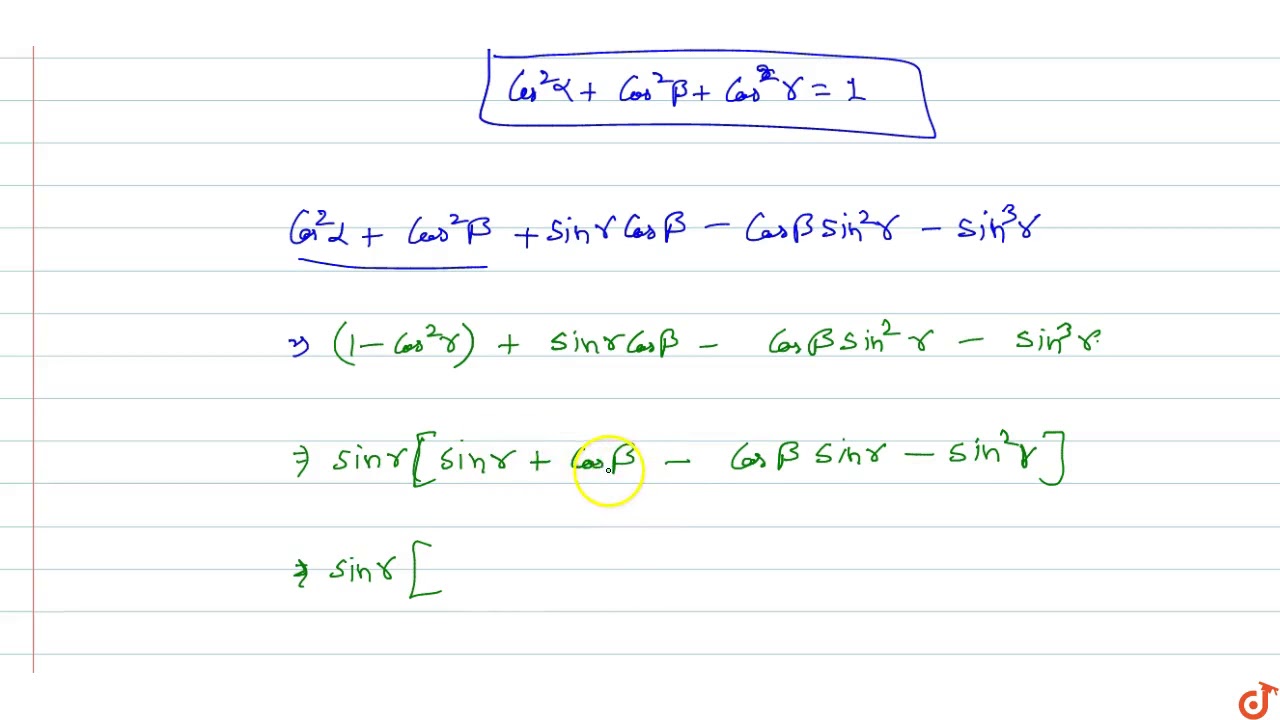 Cos²α + Cos²β + Cos²γ = 1
Cos²α + Cos²β + sinγ Cosβ − Cosβ sin²γ − sin³γ
⇒ (1 − Cos²γ) + sinγ Cosβ − Cosβ sin²γ − sin³γ
⇒ sinγ [sinγ + Cosβ − Cosβ sinγ − sin²γ]
⇒ sinγ [